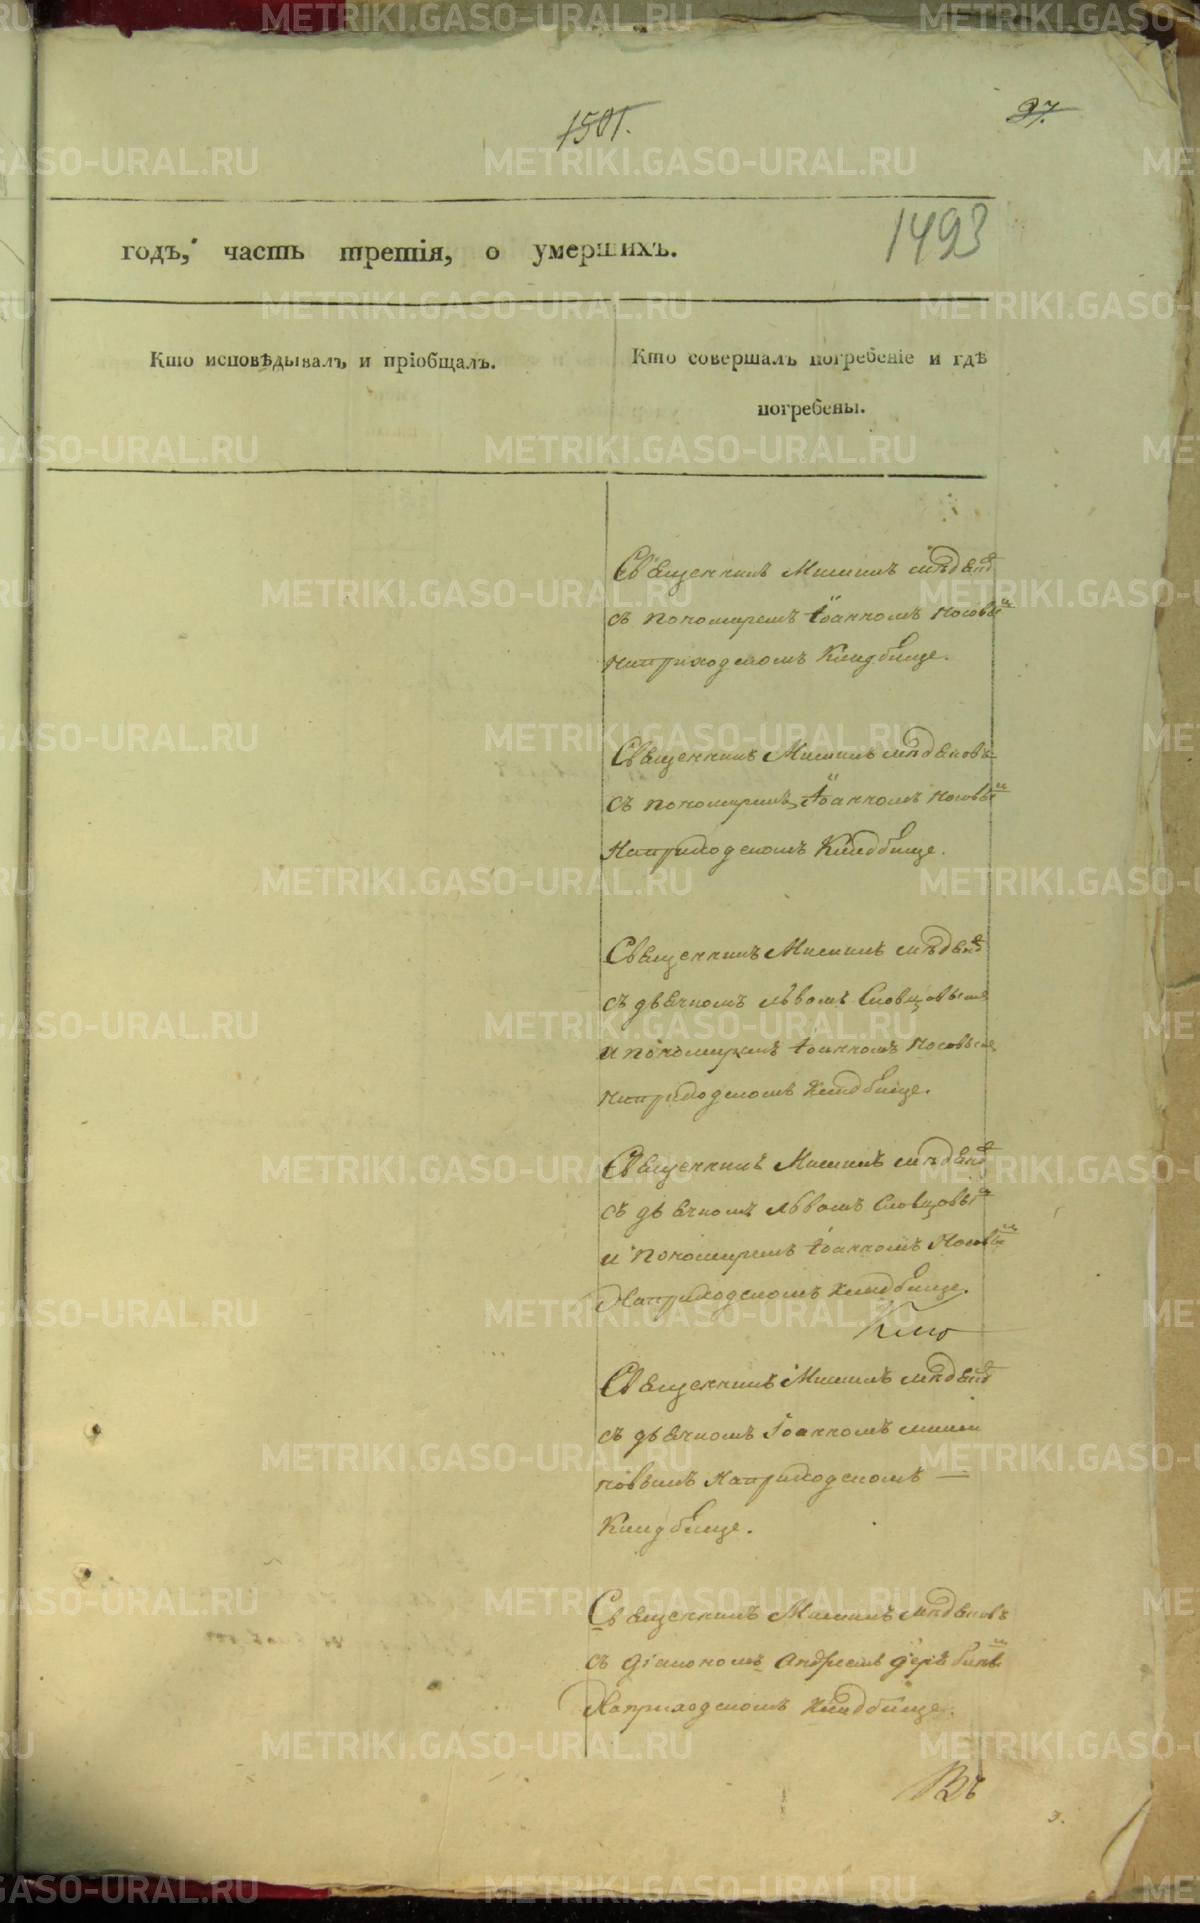 1501.
27.
1493
годъ, часть третія, о умершихъ.
Кто исповѣдывалъ и пріобщалъ.
Кто совершалъ погребеніе и гдѣ
погребены.
Священникъ Михаилъ
съ пономаремъ Іоанномъ Носовым
на приходскомъ Кладбище.
Священникъ Михаилъ
съ пономаремъ Іоанномъ Носовым
На приходскомъ Кладбище.
Священникъ Михаилъ
съ дьячкомъ Львомъ Словцовым
и пономаремъ Іоанномъ Носовым
на приходскомъ Кладбище.
Священникъ Михаилъ
съ дьячкомъ Львомъ Словцовым
и пономаремъ Іоанномъ Носовым
На приходскомъ кладбище.
Священникъ Михаилъ
съ дьячкомъ Іоанномъ
новымъ На приходскомъ —
Кладбище.
Священникъ Михаилъ
съ діакономъ Андреемъ
На приходскомъ Кладбище.
Въ
3.
METRIKI.GASO-URAL.RU